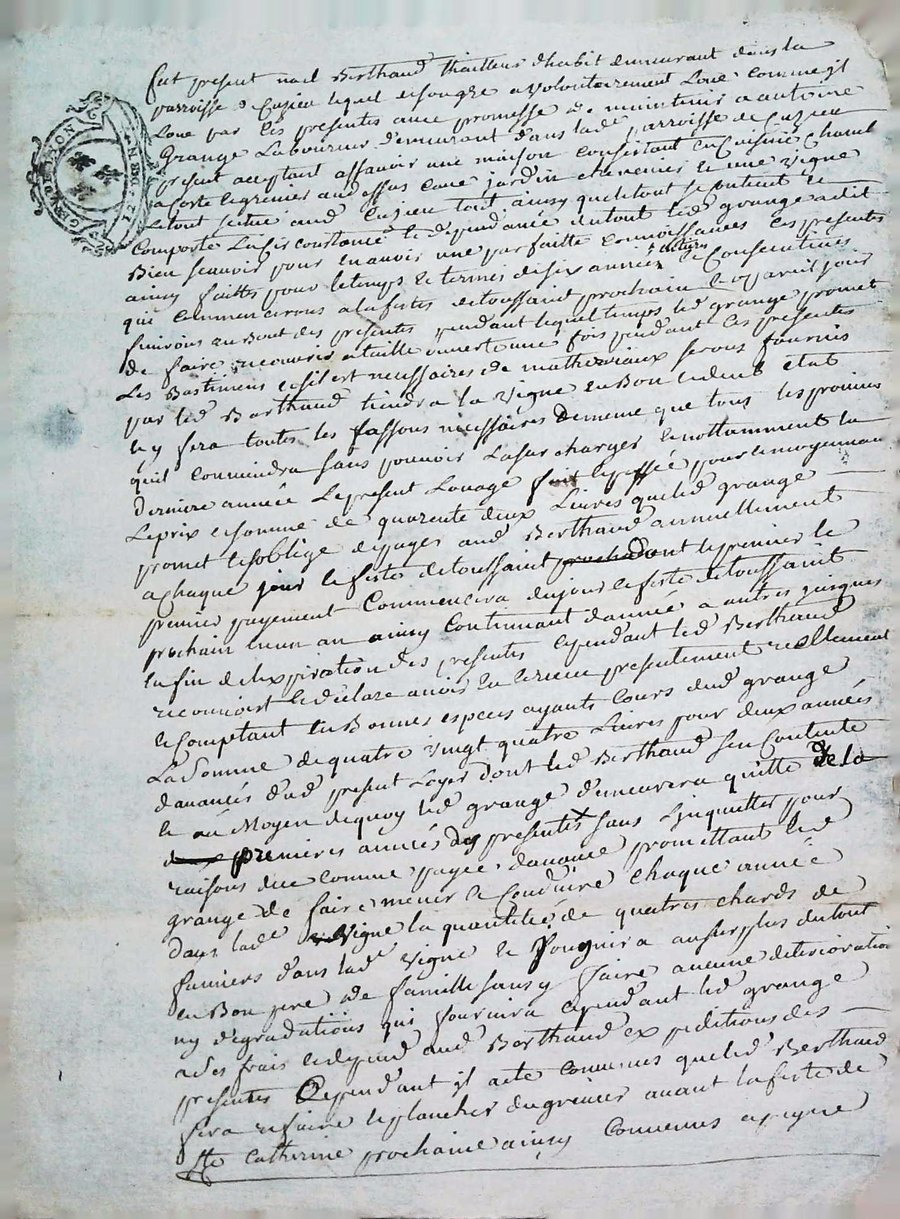 GEN DE LYON
fut present noel Berthaud thailleur dhabit demeurant dans la
parroisse de Cuzieu lequel desongre a volontairement Loué comme jl
Loue par ces presentes avec promesse de maintenir a antoine
Grange Laboureur demeurant dans lade parroisse de Cuzieu
present acceptant assavoir une maison consistant en Cuisine Chamb
a coste le grenier audessus Cave jardin chenevier et une vigne
Le tout scitué aud Cuzieu tout ainsy quele tout secontient et
Comporte Lasirconstance et dependance du tout led grange a dit
Bien scavoir pour en avoir une parfaitte connoissances Ces presentes
ainsy faittes pour le temps et termes de six années entieres et Consecutives
qui commencerons alafestes de toussaint prochain et a pareil jour
finirons au Bout des presentes pendant lequel temps led grange promet
de faire recouvrir a taille ouverte une fois pendant ces presentes
Les Bastimens et sil est nessaires de matheriaux serons fournis
par led Berthaud tiendra la vigne en Bon et deub etat
et y fera toutes les fassons necessaires de meme que tous les provins
quil conviendra sans pouvoir La sur charger et nottamment la
derniere année Le present Louage fait et passé pour et moyennant
Le prix et somme de quarente deux Livres que led grange
promet et soblige de payer aud Berthaud annuellement
a Chaque jour et feste de toussaint dont le premier le
premier payement Commencera dujour et feste de toussaint
prochain en un an ainsy Continuant dannée a autres jusques
en fin de lexpiration des presentes Cependant led Berthaud
reconnoist et declare avoir eu et receu presentement reellement
et Comptant en Bonnes especes ayants Cours dud grange
La Somme de quatre vingt quatre Livres pour deux années
davances dud present Loyer dont led Berthaud sen Contente
et au Moyen dequoy led grange demeurera quitte de la
premieres années des presentes sans Linquietter pour
raisons dice comme payee davance promettant led
grange de faire mener et Conduire chaque année
dans lade vigne la quantitée de quatres chards de
fumiers dans lade vigne et Soignira au surplus du tout
en Bon pere de famille sans y faire aucune deterioration
ny degradations qui fournira cependant led grange
ades frais et depend aud Berthaud expeditions des
presentes Cependant jl aete convenus que led Berthaud
fera refaire le plancher du grenier avant la feste de
Ste Catherine prochaine ainsy convenus